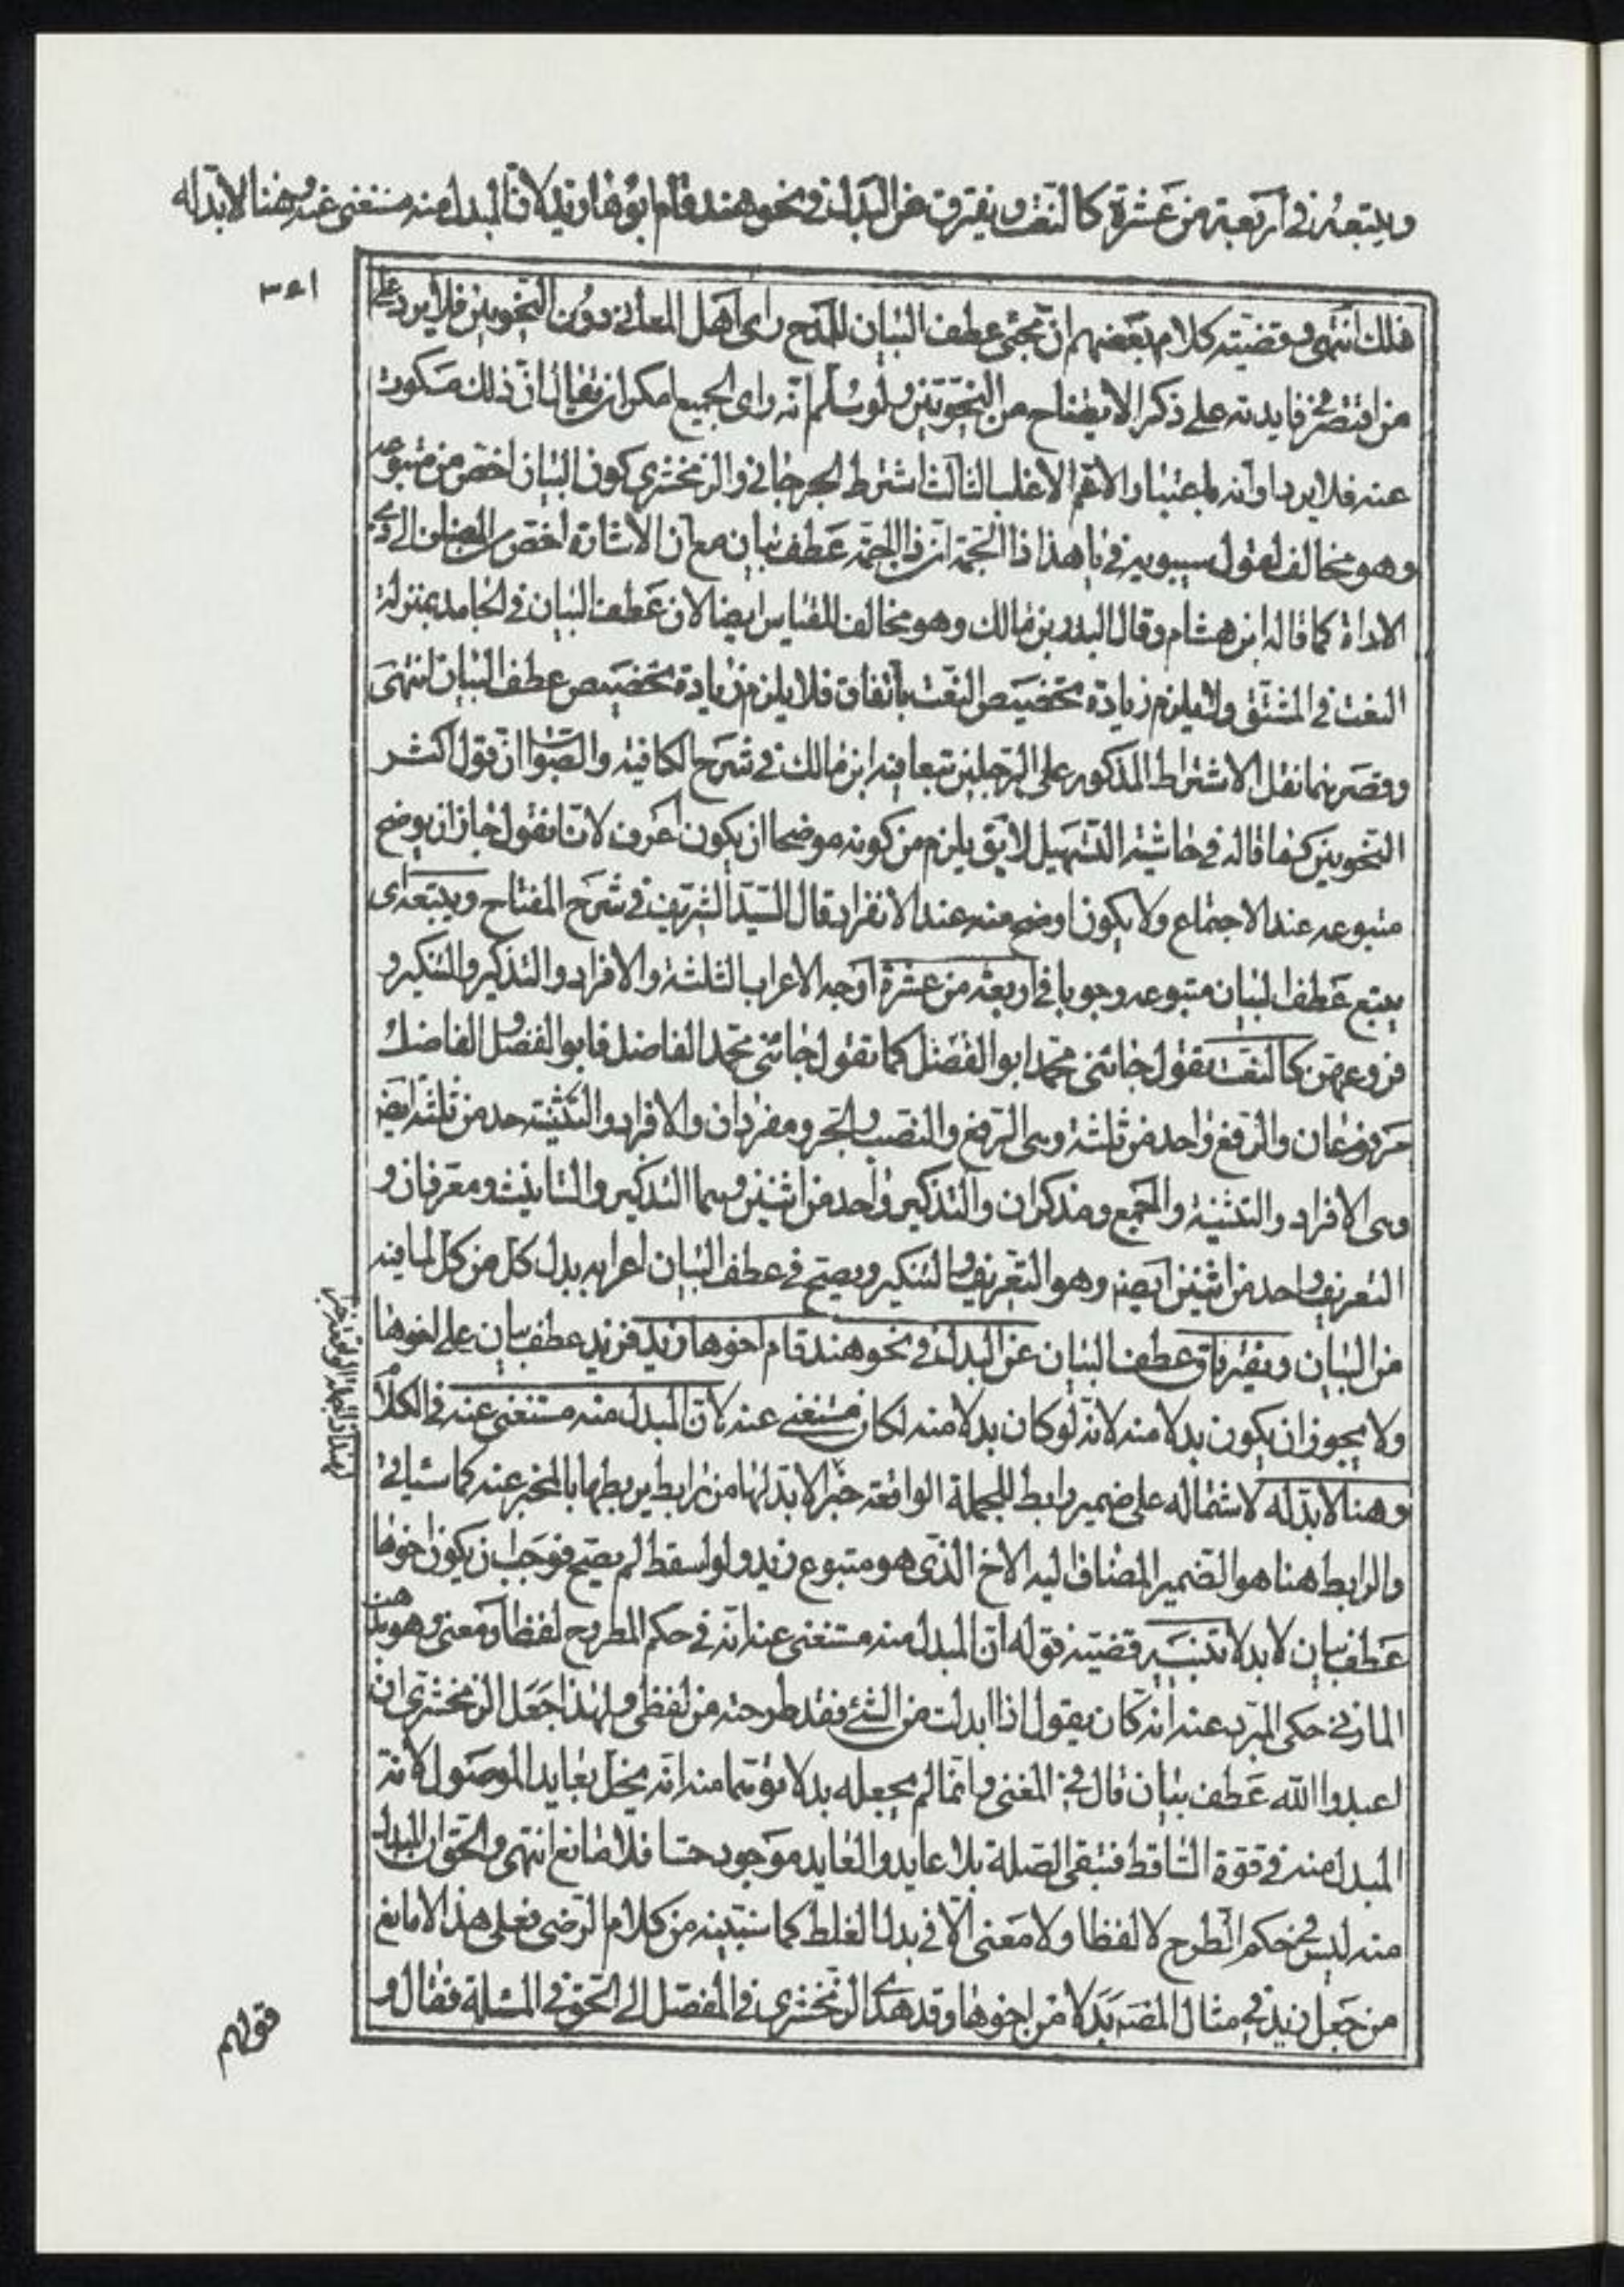 ويتبعه في اربعة من عشرة كالنعت ويفترق عن البدل في نحو هند قام ابوها زيد لان المبدل منه مستغنى عنه وهنا لا بد له
فلك انتهى وقضيته كلام بعضهم ان مجئ عطف البيان للمدح راى اهل المعانى دون النحويين فلا يرد على
من اقتصر في فايدته على ذكر الايضاح من النحويين ولو سلم انه راى الجميع امكن ان يقال ان ذلك مسكوت
عنه فلا يرد او انه باعتبار الاعم الاغلب الثالث اشترط الجرجانى والزمخشرى كون البيان اخص من متبوعه
وهو مخالف لقول سيبويه في يا هذا ذا الجمة ان ذا الجمة عطف بيان مع ان الاشارة اخص من المضاف الى ذى
الاداة كما قاله ابن هشام وقال البدر بن مالك وهو مخالف للقياس ايضا لان عطف البيان في الجامد بمنزلة
النعت في المشتق ولا يلزم زيادة تخصيص النعت باتفاق فلا يلزم زيادة تخصيص عطف البيان انتهى
وقصرهما نقل الاشتراط المذكور على الرجلين تبعا فيه ابن مالك في شرح الكافية والصواب ان قول اكثر
النحويين كما قاله في حاشية التسهيل لا يق يلزم من كونه موضحا ان يكون اعرف لانا نقول جاز ان يوضح
متبوعه عند الاجتماع ولا يكون اوضح منه عند الانفراد قال السيد الشريف في شرح المفتاح ويتبعه اى
يتبع عطف البيان متبوعه وجوبا في اربعة من عشرة اوجه الاعراب الثلثة والافراد والتذكير والتنكير و
فروعهن كالنعت تقول جائنى محمد ابو الفضل كما تقول جائنى محمد الفاضل فابو الفضل الفاضل
مرفوعان والرفع واحد من ثلثة وهى الرفع والنصب والجر ومفردان والافراد والتثنية حد من ثلثة ايضه
وهى الافراد والتثنية والجمع ومذكران والتذكير واحد من اثنين وهما التذكير والتانيث ومعرفان و
التعريف واحد من اثنين ايضه وهو التعريف والتنكير ويصح في عطف البيان اعرابه بدل كل من كل لما فيه
من البيان ويفترق عطف البيان عن البدل في نحو هند قام اخوها زيد فزيد عطف بيان على اخوها
ولا يجوز ان يكون بدلا منه لانه لو كان بدلا منه لكان مستغنى عنه لان المبدل منه مستغنى عنه في الكلام
وهنا لا بد له لاشتماله على ضمير رابط للجملة الواقعة خبرا لا بد لها من رابط يربطها بالمخبر عنه كما سياتى
والرابط هنا هو الضمير المضاف اليه الاخ الذى هو متبوع زيد ولو اسقط لم يصح فوجب ان يكون اخوها
عطف بيان لا بدلا تنبيه قضية قوله ان المبدل منه مستغنى عنه انه في حكم المطروح لفظا ومعنى وهو مذهب
المازنى حكى المبرد عنه انه كان يقول اذا ابدلت من الشئ فقد طرحته من لفظى ولهذا جعل الزمخشرى ان
اعبدوا الله عطف بيان قال في المغنى وانما لم يجعله بدلا توهما منه انه يخل بعايد الموصول لانه
المبدل منه في قوة الساقط فتبقى الصلة بلا عايد والعايد موجود حسا فلا مانع انتهى والحق ان المبدل
منه ليس في حكم الطرح لا لفظا ولا معنى الا في بدل الغلط كما سنبينه من كلام الرضى فعلى هذا لا مانع
من جعل زيد في مثال المصه بدلا من اخوها وقد هدى الزمخشرى في المفصل الى الحق في المسئلة فقال و
قولهم